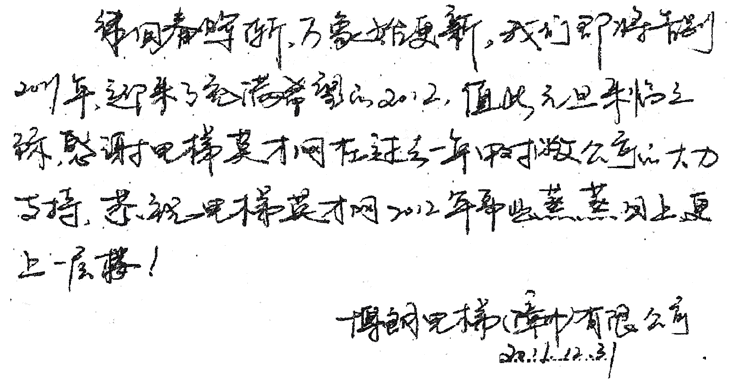 律回春晖渐，万象始更新。我们即将告别
2011年，迎来了充满希望的2012，值此元旦来临之
际，感谢电梯英才网在过去一年中对敝公司的大力
支持，恭祝电梯英才网2012年事业蒸蒸日上，更
上一层楼！
博朗电梯(漳州)有限公司
2011.12.31